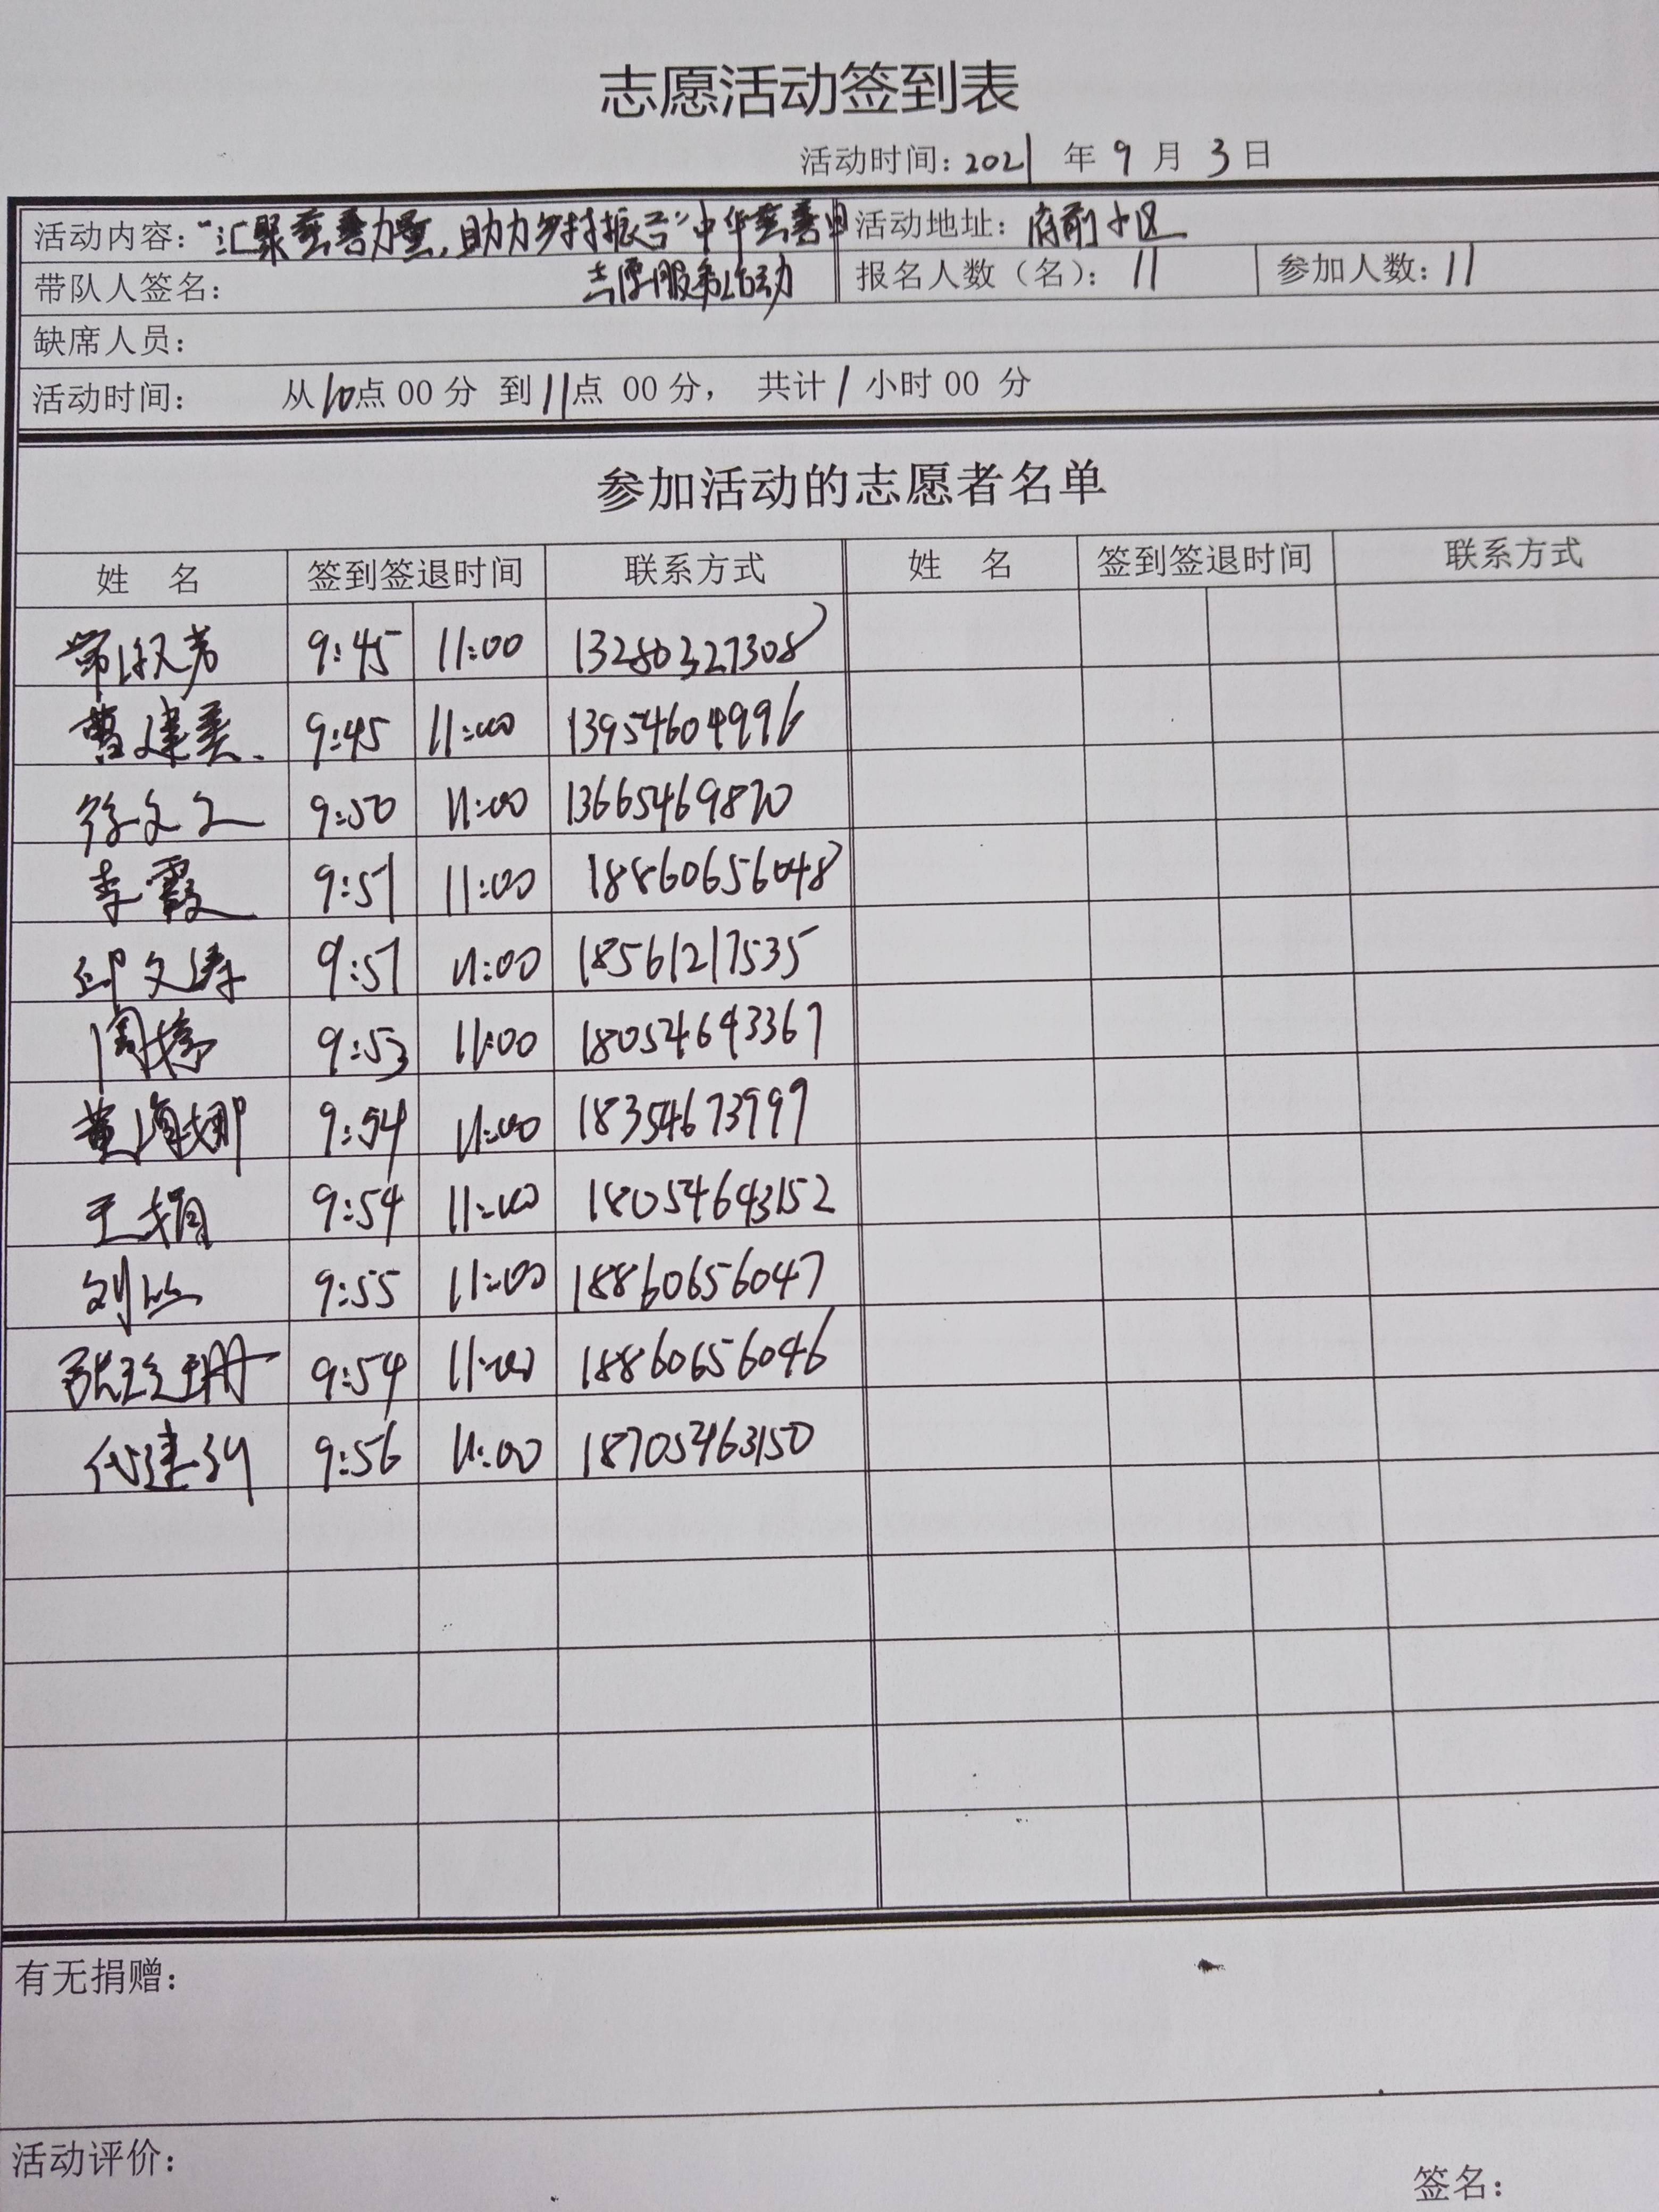 志愿活动签到表
活动时间: 2021 年 9 月 3 日
活动内容: “汇聚慈善力量,助力乡村振兴”中华慈善日 活动地址: 府前小区
志愿服务活动
带队人签名: 报名人数（名）: 11 参加人数: 11
缺席人员:
活动时间: 从10点 00 分 到11点 00 分， 共计1 小时 00 分
参加活动的志愿者名单
姓 名 签到签退时间 联系方式 姓 名 签到签退时间 联系方式
常淑芳 9:45 11:00 13280327308
曹建美 9:45 11:00 13954604996
徐文文 9:50 11:00 13665469870
李霞 9:51 11:00 18860656048
邱文涛 9:51 11:00 18561217535
周婷 9:53 11:00 18054643367
黄海娜 9:54 11:00 18354673997
王娟 9:54 11:00 18054643152
刘丛 9:55 11:00 18860656047
张珍珊 9:54 11:00 18860656046
代建 9:56 11:00 18705463150
有无捐赠:
活动评价:
签名: